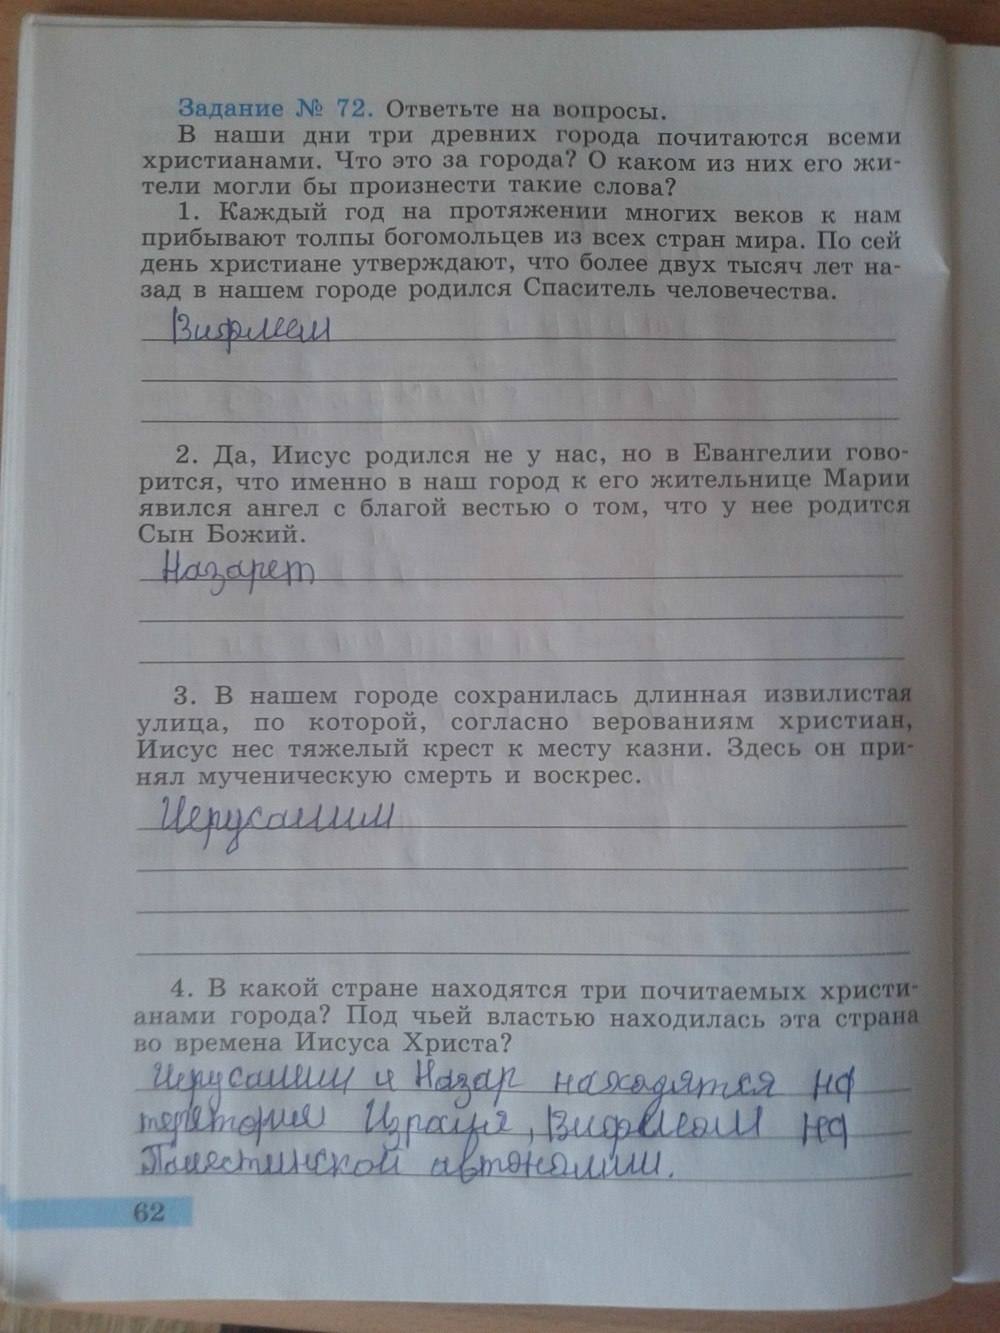 Задание № 72. Ответьте на вопросы.
В наши дни три древних города почитаются всеми
христианами. Что это за города? О каком из них его жи-
тели могли бы произнести такие слова?
1. Каждый год на протяжении многих веков к нам
прибывают толпы богомольцев из всех стран мира. По сей
день христиане утверждают, что более двух тысяч лет на-
зад в нашем городе родился Спаситель человечества.
Вифлеем
2. Да, Иисус родился не у нас, но в Евангелии гово-
рится, что именно в наш город к его жительнице Марии
явился ангел с благой вестью о том, что у нее родится
Сын Божий.
Назарет
3. В нашем городе сохранилась длинная извилистая
улица, по которой, согласно верованиям христиан,
Иисус нес тяжелый крест к месту казни. Здесь он при-
нял мученическую смерть и воскрес.
Иерусалим
4. В какой стране находятся три почитаемых христи-
анами города? Под чьей властью находилась эта страна
во времена Иисуса Христа?
Иерусалим и Назар находятся на
терятории Израиля, Вифлеом на
Палестинской автономии.
62